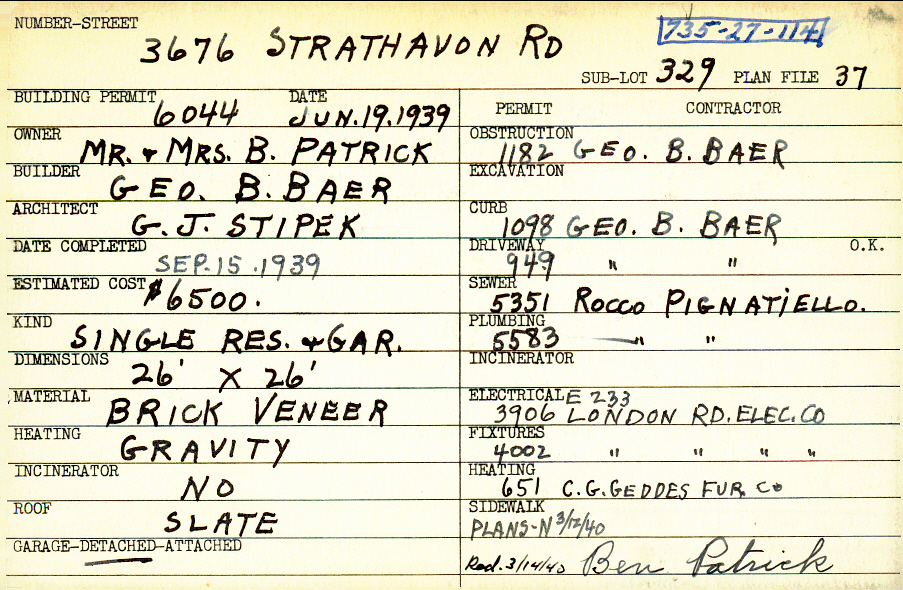 NUMBER-STREET
3676 STRATHAVON RD
735-27-114
SUB-LOT 329 PLAN FILE 37
BUILDING PERMIT 6044 DATE JUN.19.1939
OWNER MR. & MRS. B. PATRICK
BUILDER GEO. B. BAER
ARCHITECT G.J. STIPEK
DATE COMPLETED SEP.15.1939
ESTIMATED COST $6500.
KIND SINGLE RES. & GAR.
DIMENSIONS 26' X 26'
MATERIAL BRICK VENEER
HEATING GRAVITY
INCINERATOR NO
ROOF SLATE
GARAGE-DETACHED-ATTACHED
PERMIT CONTRACTOR
OBSTRUCTION 1182 GEO. B. BAER
EXCAVATION
CURB 1098 GEO. B. BAER
DRIVEWAY 949 " " O.K.
SEWER 5351 ROCCO PIGNATIELLO.
PLUMBING 5583 " "
INCINERATOR
ELECTRICAL E 233
3906 LONDON RD. ELEC. CO
FIXTURES 4002 " " " "
HEATING 651 C.G. GEDDES FUR. CO
SIDEWALK
PLANS-N 3/12/40
Recd. 3/14/40 Ben Patrick